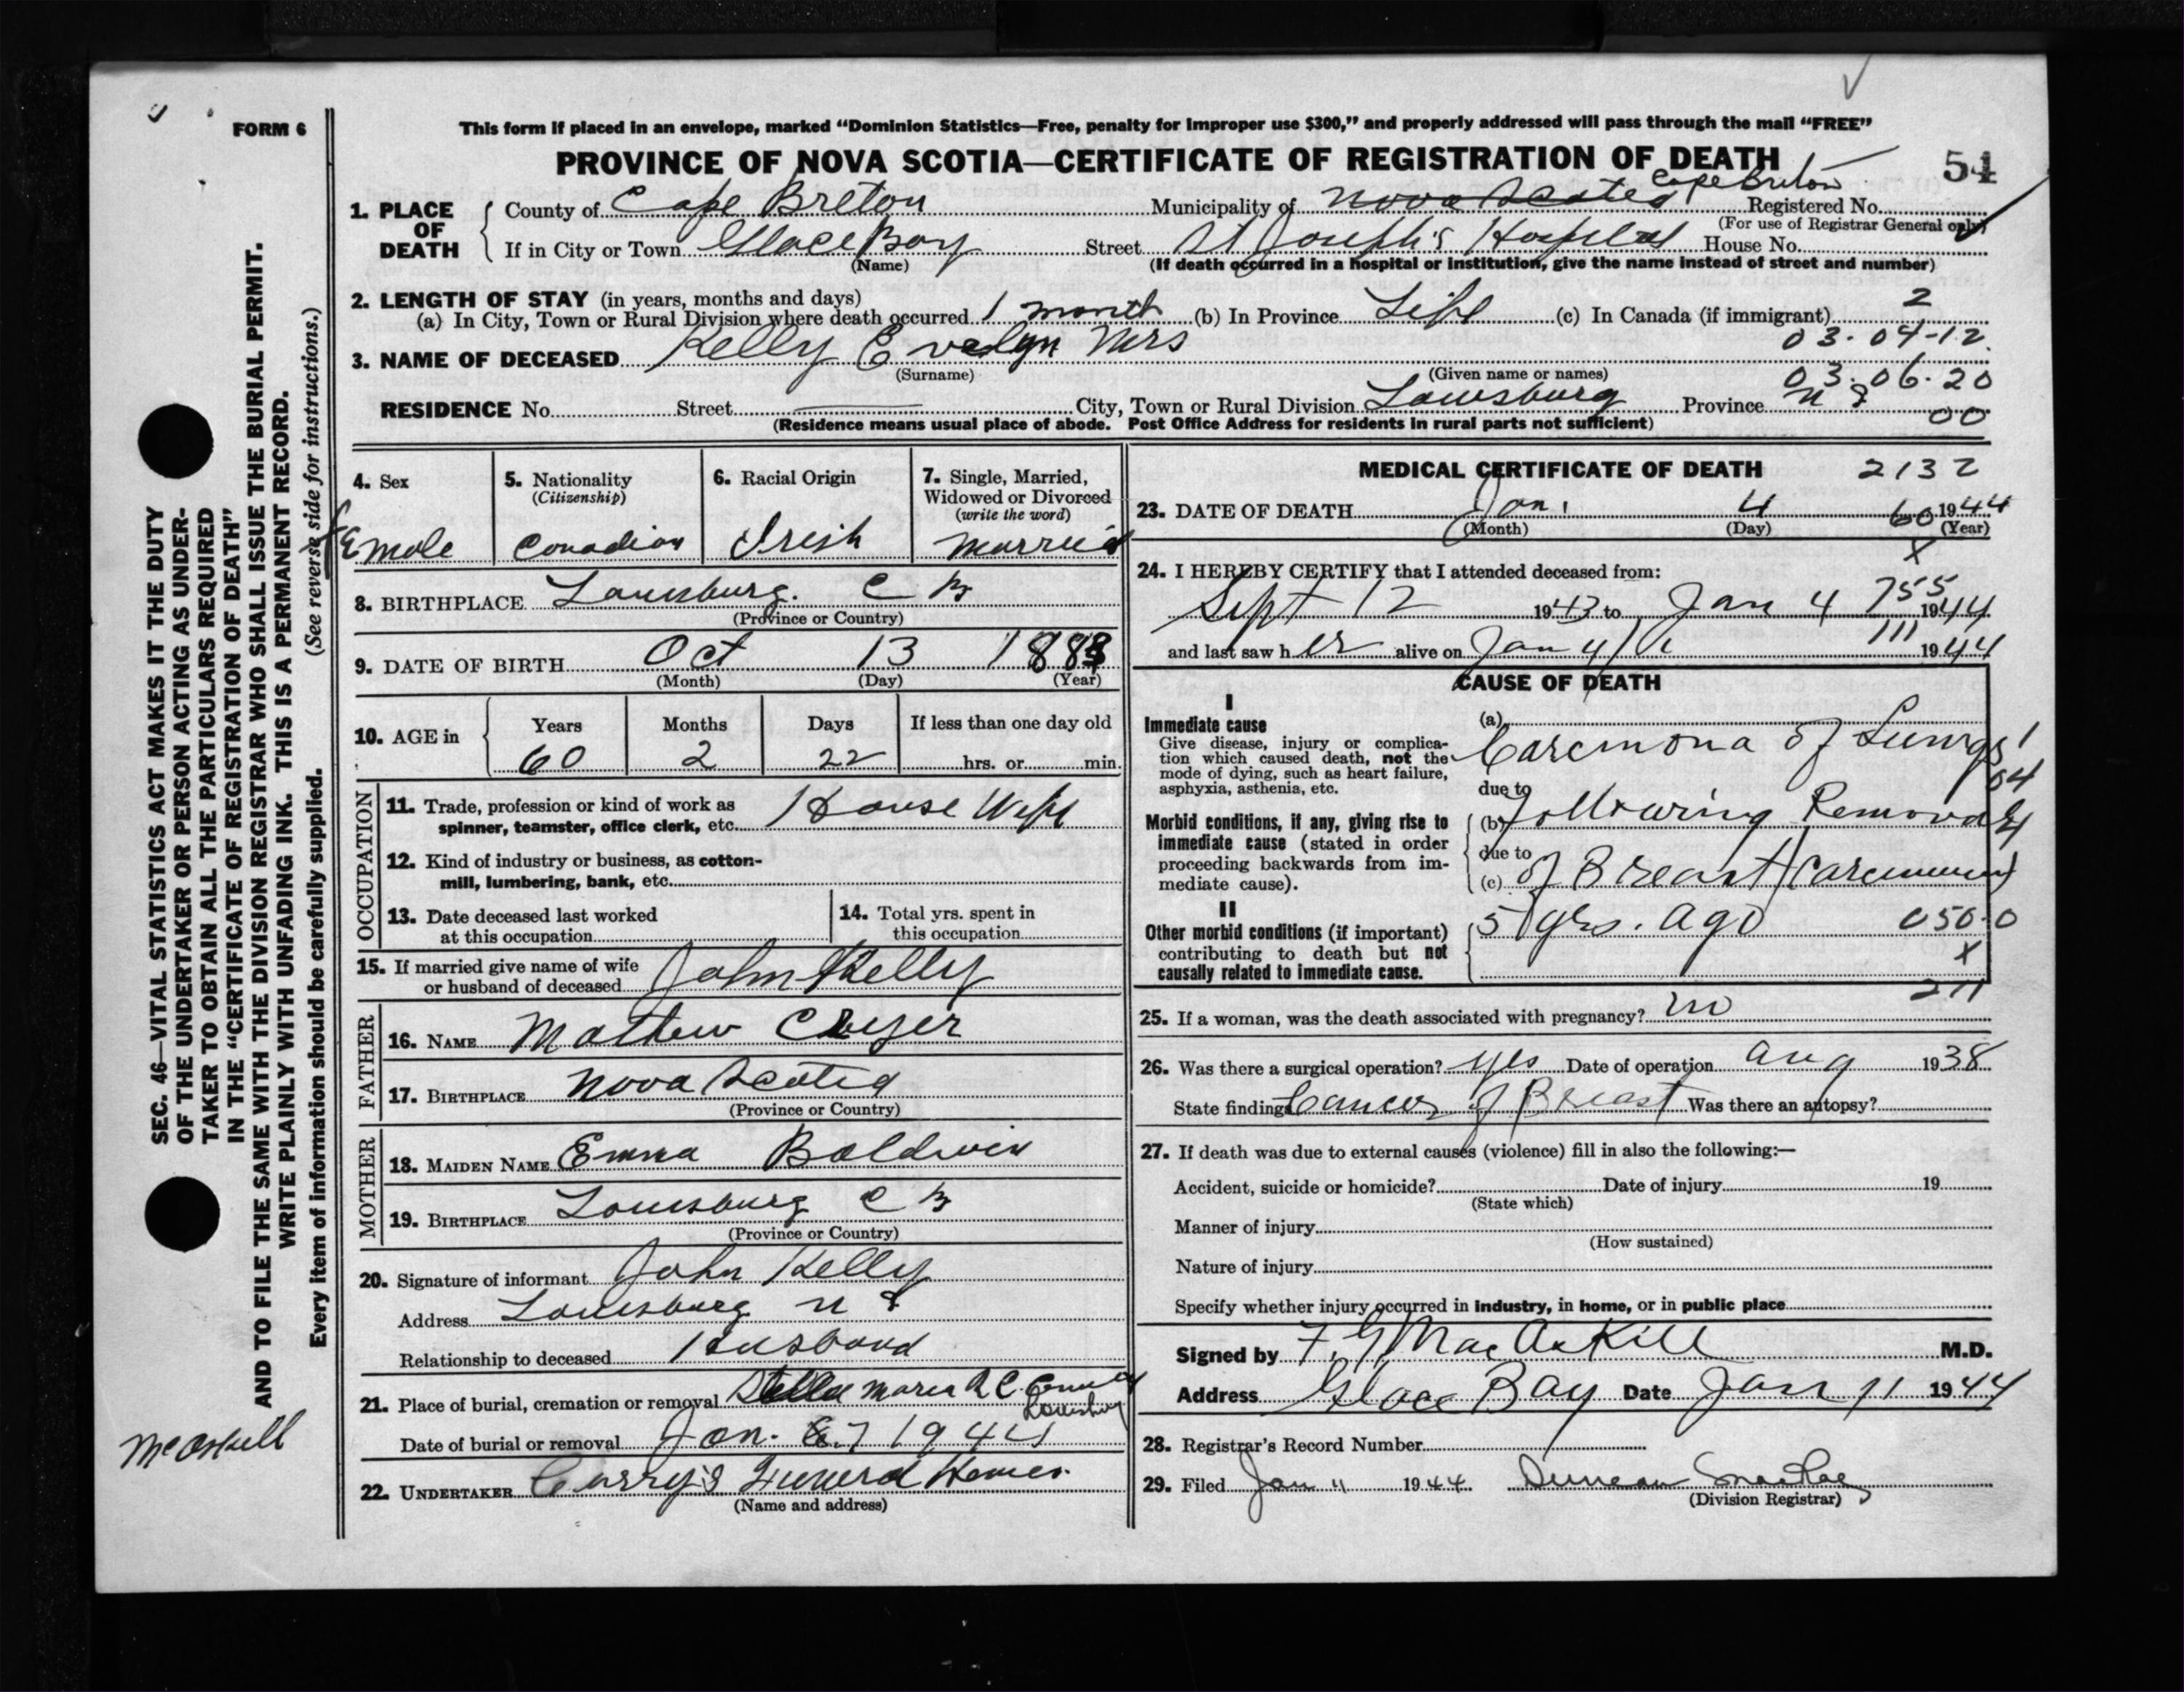 FORM 6
This form if placed in an envelope, marked “Dominion Statistics—Free, penalty for improper use $300,” and properly addressed will pass through the mail “FREE”
PROVINCE OF NOVA SCOTIA—CERTIFICATE OF REGISTRATION OF DEATH
54
1. PLACE OF DEATH
County of Cape Breton Municipality of Nova Scotia Cape Breton Registered No.
(For use of Registrar General only)
If in City or Town Glace Bay Street St Joseph's Hospital House No.
(Name) (If death occurred in a hospital or institution, give the name instead of street and number)
2. LENGTH OF STAY (in years, months and days)
(a) In City, Town or Rural Division where death occurred 1 month (b) In Province Life (c) In Canada (if immigrant) 2
03-04-12
3. NAME OF DECEASED Kelly Evelyn Mrs
(Surname) (Given name or names) 03-06-20
RESIDENCE No. Street City, Town or Rural Division Louisburg Province N S 00
(Residence means usual place of abode. Post Office Address for residents in rural parts not sufficient)
4. Sex female
5. Nationality (Citizenship) Canadian
6. Racial Origin Irish
7. Single, Married, Widowed or Divorced (write the word) Married
8. BIRTHPLACE Louisburg. C B
(Province or Country)
9. DATE OF BIRTH Oct 13 1883
(Month) (Day) (Year)
10. AGE in Years 60 Months 2 Days 22 If less than one day old hrs. or min.
OCCUPATION
11. Trade, profession or kind of work as spinner, teamster, office clerk, etc. House Wife
12. Kind of industry or business, as cotton-mill, lumbering, bank, etc.
13. Date deceased last worked at this occupation
14. Total yrs. spent in this occupation
15. If married give name of wife or husband of deceased John Kelly
FATHER
16. NAME Mathew
17. BIRTHPLACE Nova Scotia
(Province or Country)
MOTHER
18. MAIDEN NAME Emma Baldwin
19. BIRTHPLACE Louisburg C B
(Province or Country)
20. Signature of informant John Kelly
Address Louisburg N S
Relationship to deceased Husband
21. Place of burial, cremation or removal Stella Maris R C Louisburg
Date of burial or removal Jan. 7 1944
22. UNDERTAKER Curry's Funeral Homes.
(Name and address)
MEDICAL CERTIFICATE OF DEATH 2132
23. DATE OF DEATH Jan. 4 1944
(Month) (Day) (Year)
60
X
24. I HEREBY CERTIFY that I attended deceased from:
755
Sept 12 1943 to Jan 4 1944
111
and last saw her alive on Jan 4 1944
CAUSE OF DEATH
I
Immediate cause
Give disease, injury or complication which caused death, not the mode of dying, such as heart failure, asphyxia, asthenia, etc.
(a) Carcinoma of Lungs
due to
Morbid conditions, if any, giving rise to immediate cause (stated in order proceeding backwards from immediate cause).
(b) following Removal
due to
(c) of Breast (Carcinoma)
II
Other morbid conditions (if important) contributing to death but not causally related to immediate cause.
5 yrs. ago 050-0
X
211
25. If a woman, was the death associated with pregnancy? no
26. Was there a surgical operation? yes Date of operation Aug 1938
State findings Cancer of Breast Was there an autopsy?
27. If death was due to external causes (violence) fill in also the following:—
Accident, suicide or homicide? Date of injury 19
(State which)
Manner of injury
(How sustained)
Nature of injury
Specify whether injury occurred in industry, in home, or in public place
Signed by F. G. MacAskill M.D.
Address Glace Bay Date Jan 11 1944
28. Registrar's Record Number
29. Filed Jan 11 1944 Duncan MacRae
(Division Registrar)
SEC. 46—VITAL STATISTICS ACT MAKES IT THE DUTY
OF THE UNDERTAKER OR PERSON ACTING AS UNDER-
TAKER TO OBTAIN ALL THE PARTICULARS REQUIRED
IN THE “CERTIFICATE OF REGISTRATION OF DEATH”
AND TO FILE THE SAME WITH THE DIVISION REGISTRAR WHO SHALL ISSUE THE BURIAL PERMIT.
WRITE PLAINLY WITH UNFADING INK. THIS IS A PERMANENT RECORD.
Every item of information should be carefully supplied. (See reverse side for instructions.)
McAskill